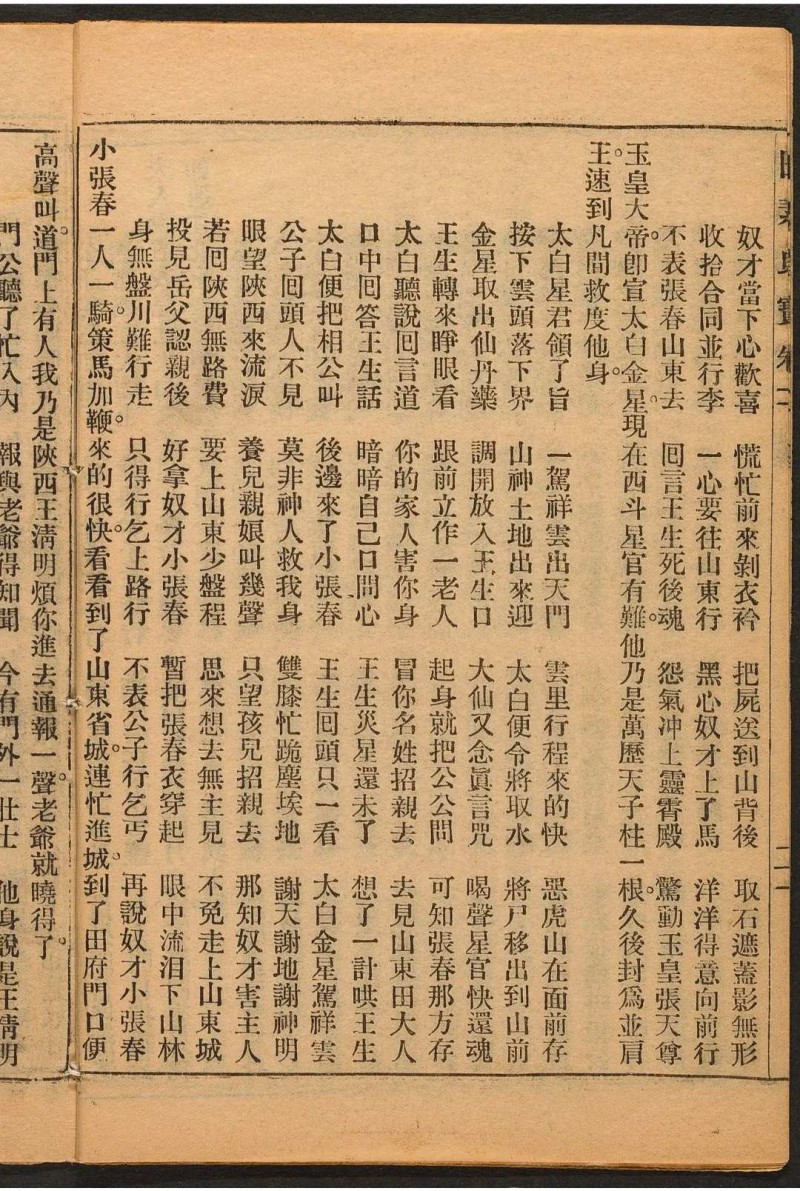 奴才當下心歡喜　慌忙前來剝衣衿　把屍送到山背後　取石遮蓋影無形
收拾合同並行李　一心要往山東行　黑心奴才上了馬　洋洋得意向前行
不表張春山東去　囘言王生死後魂　怨氣冲上靈霄殿　驚動玉皇張天尊
玉皇大帝。卽宣太白金星。現在西斗星官有難。他乃是萬歷天子柱一根。久後封爲並肩
王。速到凡間救度他身。
太白星君領了旨　一駕祥雲出天門　雲里行程來的快　惡虎山在面前存
按下雲頭落下界　山神土地出來迎　太白便令將取水　將尸移出到山前
金星取出仙丹藥　調開放入王生口　大仙又念眞言咒　喝聲星官快還魂
王生轉來睜眼看　跟前立作一老人　起身就把公公問　可知張春那方存
太白聽說囘言道　你的家人害你身　冒你名姓招親去　去見山東田大人
口中囘答王生話　暗暗自己口問心　王生災星還未了　想了一計哄王生
太白便把相公叫　後邊來了小張春　王生囘頭只一看　太白金星駕祥雲
公子囘頭人不見　莫非神人救我身　雙膝忙跪塵埃地　謝天謝地謝神明
眼望陝西來流淚　養兒親娘叫幾聲　只望孩兒招親去　那知奴才害主人
若囘陝西無路費　要上山東少盤程　思來想去無主見　不免走上山東城
投見岳父認親後　好拿奴才小張春　暫把張春衣穿起　眼中流泪下山林
身無盤川難行走　只得行乞上路行　不表公子行乞丐　再說奴才小張春
小張春一人一騎。策馬加鞭。來的很快。看看到了山東省城。連忙進城。到了田府門口。便
高聲叫。道門上有人我乃是陝西王淸明煩你進去通報一聲。老爺就曉得了。
門公聽了忙入內　報與老爺得知聞　今有門外一壯士　他身說是王淸明